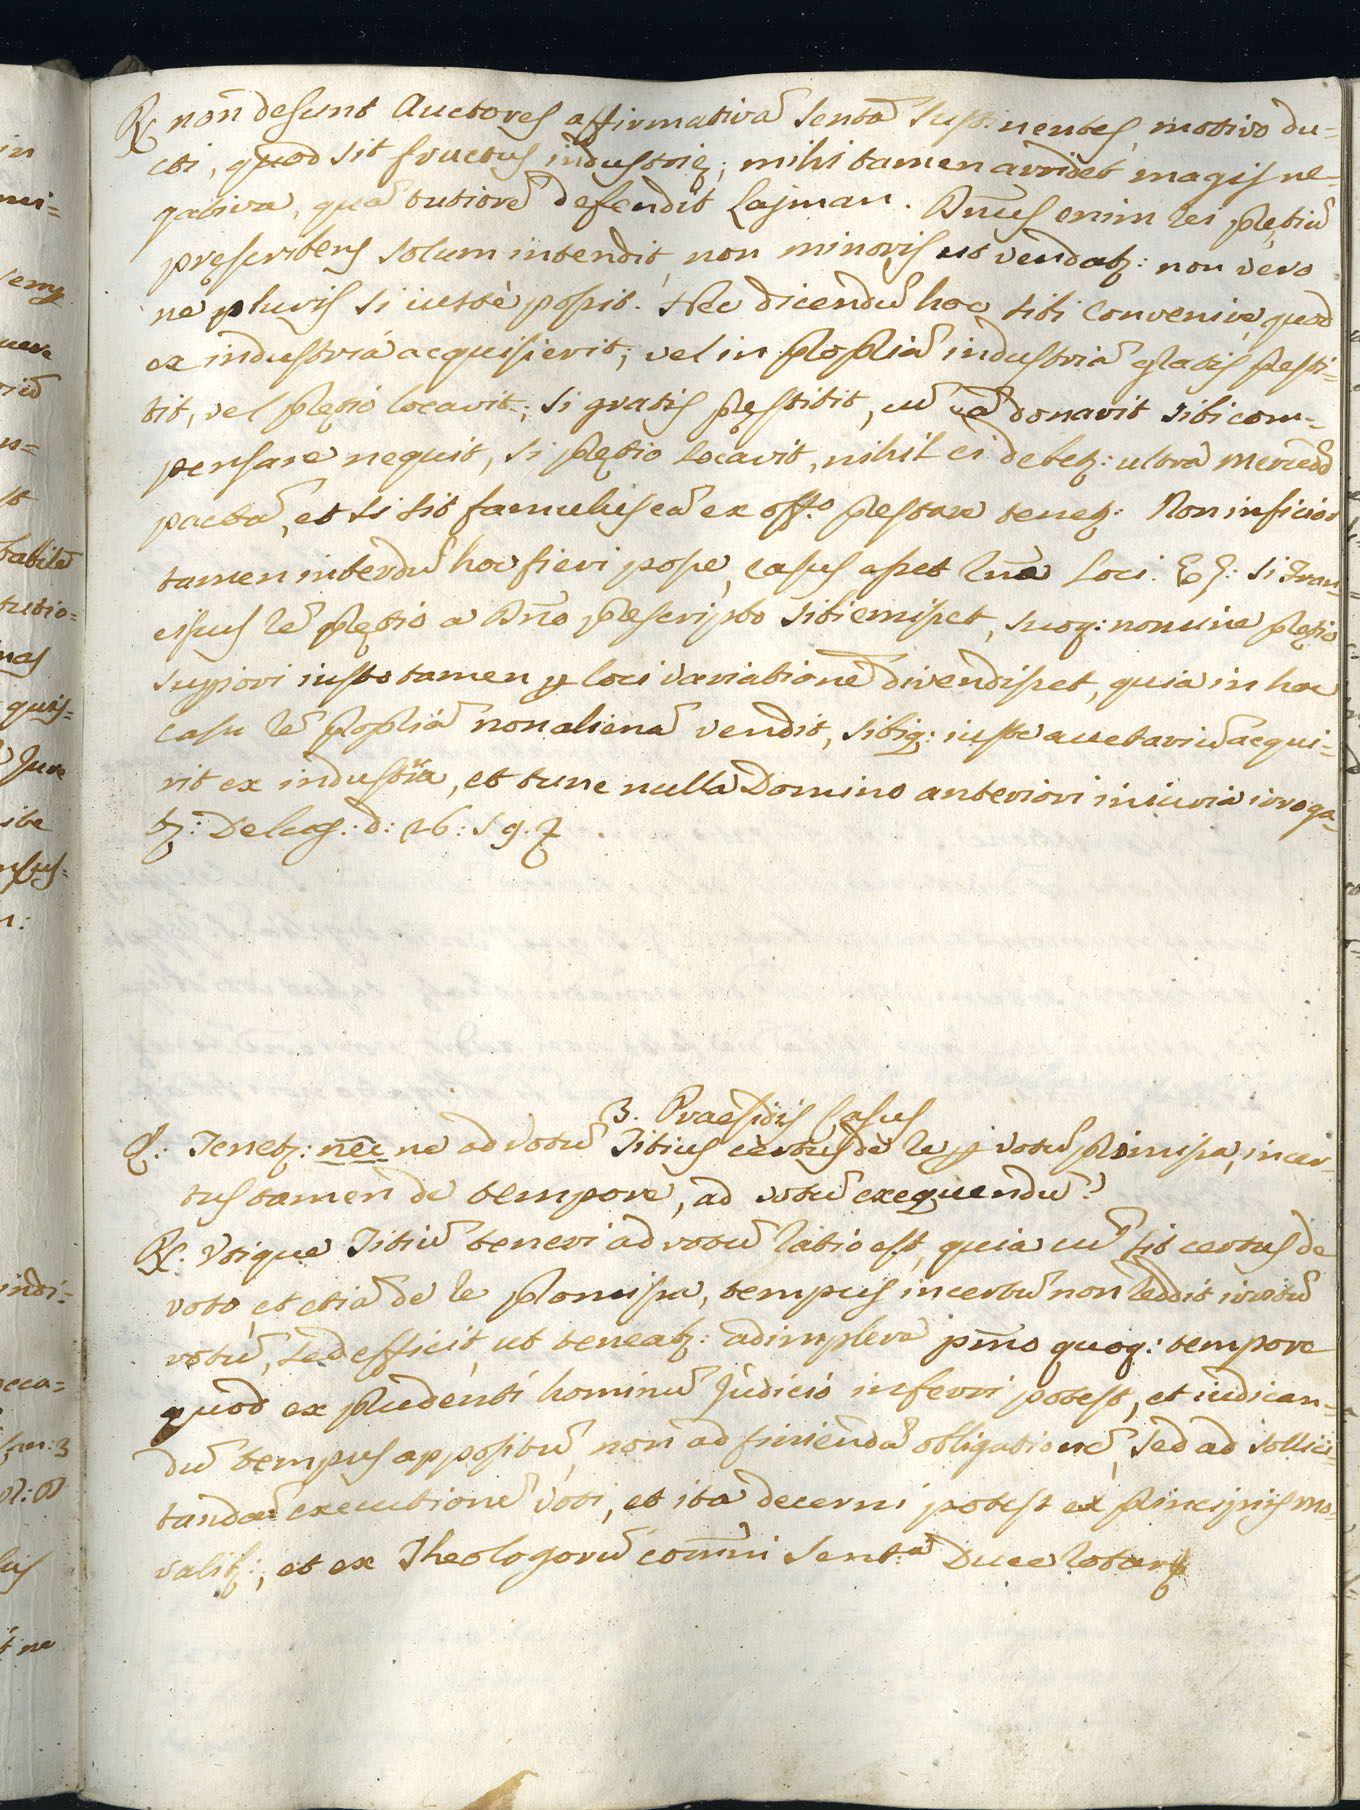 ℟ non desunt Auctores affirmativã sentã sustinentes, motivo du=
cti, quod sit fructus industrię; mihi tamen arridet magis ne-
gativa, quã tutiorẽ defendit Lajman. Dñus enim rei prętiũ
pręscribens solum intendit, non minoris ut vendatꝫ: non vero
ne pluris si iustè possit. Nec dicendũ hoc sibi convenire, quod
ex industriâ acquisierit; vel in propriã industriã gratis presti=
tit, vel prętio locavit; si gratis pręstitit, cũ eã donavit sibi com=
pensare nequit, si prętio locavit, nihil ei debetꝫ: ultra mercedẽ
pactã, et si sit famulus eã ex off.º prestare tenetꝫ: Non inficior
tamen interdũ hoc fieri posse, casus asset Loci. E.g: si Fran=
ciscus rẽ prętio a Dño prescripto sibi emisset, suoqꝫ: nomine prętio
superiori iusto tamen ꝑ loci variationẽ divendisset, quia in hoc
casu rẽ propriã non alienã vendit, sibiqꝫ: iuste auctariũ acqui=
rit ex industria, et tunc nulla Domino anteriori iniuria irroga=
tꝫ: De lug: d: 26: s 9. 7
3. Praesidis Casus
Q: Tenetꝫ: nec ne ad votũ Titius certus de re ꝑ votũ promissa, incer=
tus tamen de tempore, ad votũ exequendũ?
℟. Utique Titiũ teneri ad votũ ratio est, quia cũ sit certus de
voto, et etiã de re promissa, tempus incertũ non reddit irritũ
votũ, sed efficit, ut teneatꝫ: adimplere pr̃mo quoqꝫ: tempore
quod ex prudenti hominũ judicio inferri potest, et iudican=
dũ tempus appositũ, non ad finiendã obligationẽ, sed ad sollici=
tandam executionẽ voti, et ita decerni potest ex principijs mo=
ralibꝫ:, et ex Theologorũ com̃uni sent.ã Duce